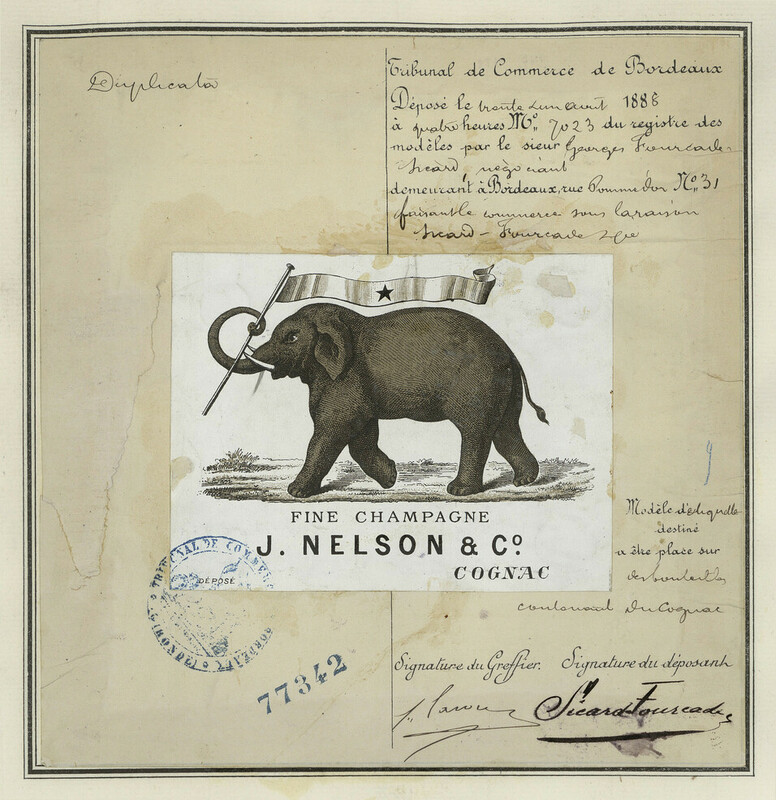 Duplicata
Tribunal de Commerce de Bordeaux
Déposé le trente un août 1888
à quatre heures Nº 7023 du registre des
modèles par le sieur Georges Fourcade-
Sicard négociant
demeurant à Bordeaux, rue Pomme d'or Nº 31
faisant le commerce sous la raison
Sicard-Fourcade
FINE CHAMPAGNE
J. NELSON & Cº
COGNAC
DÉPOSÉ
TRIBUNAL DE COMMERCE
BORDEAUX (GIRONDE)
77342
Modèle d'étiquette
destiné
a être place sur
des bouteilles
contenant Du Cognac
Signature du Greffier. Signature du déposant
Sicard-Fourcade